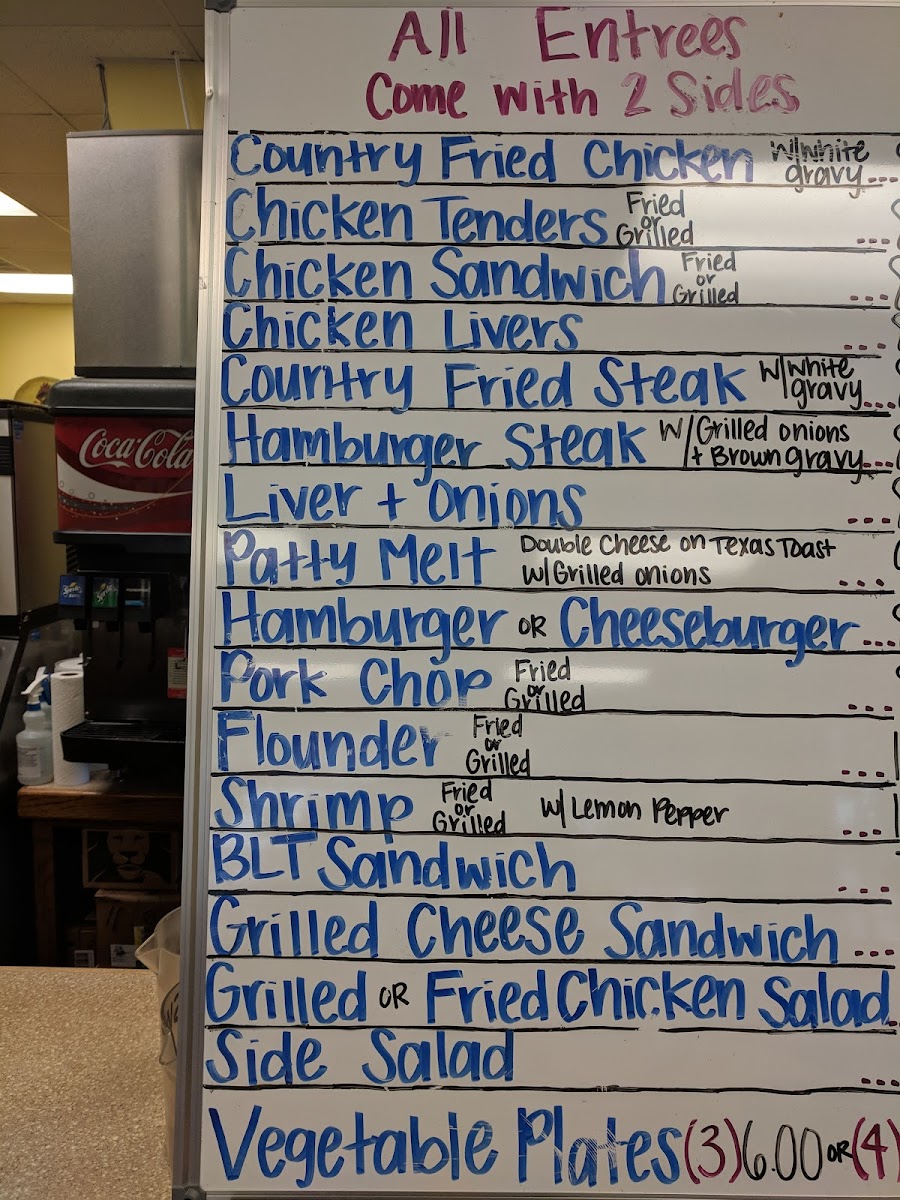 All Entrees
Come with 2 Sides
Country Fried Chicken w/white gravy...
Chicken Tenders Fried or Grilled ...
Chicken Sandwich Fried or Grilled ...
Chicken Livers ...
Country Fried Steak w/white gravy...
Hamburger Steak w/Grilled onions + Brown gravy...
Liver + Onions ...
Patty Melt Double Cheese on Texas Toast w/Grilled onions ...
Hamburger OR Cheeseburger ...
Pork Chop Fried or Grilled ...
Flounder Fried or Grilled ...
Shrimp Fried or Grilled w/ Lemon Pepper ...
BLT Sandwich ...
Grilled Cheese Sandwich ...
Grilled OR Fried Chicken Salad.
Side Salad ...
Vegetable Plates (3) 6.00 OR (4)
Coca-Cola
Sprite